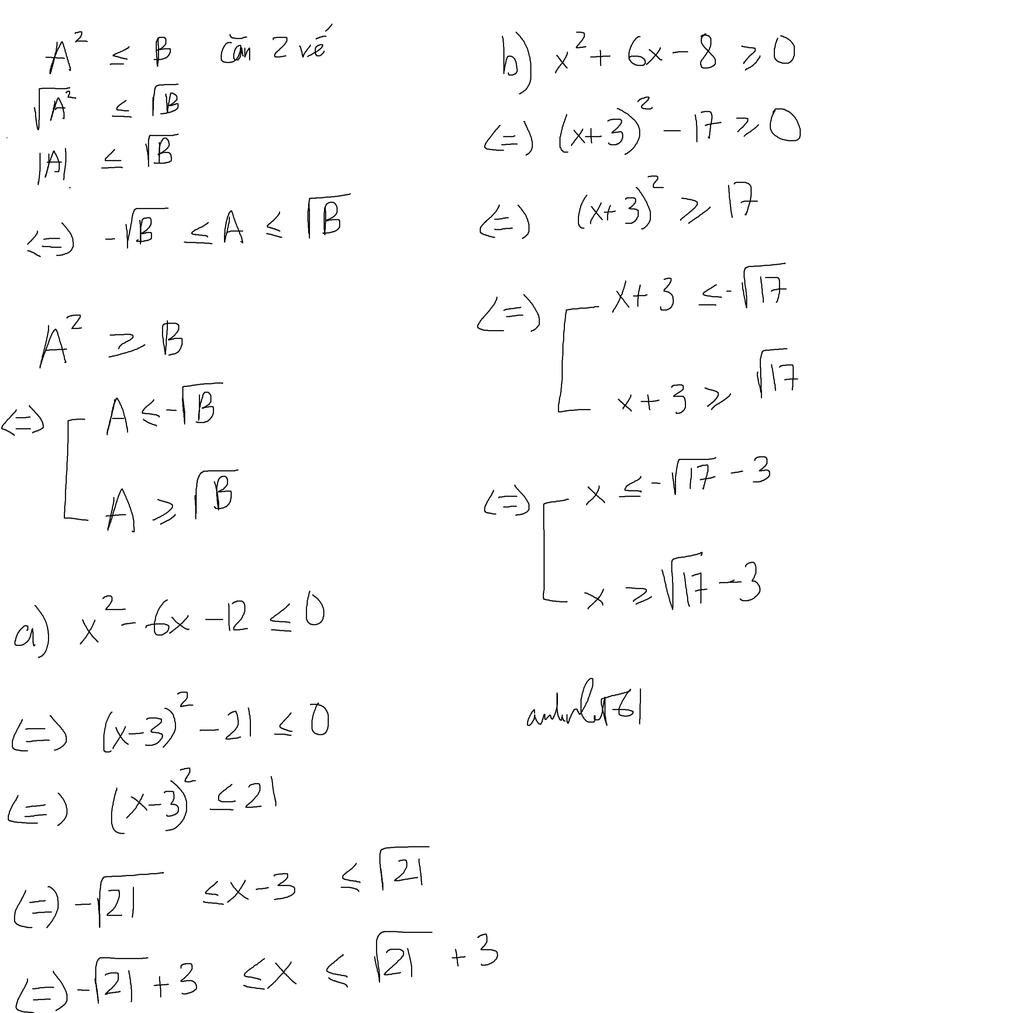 A² ≤ B căn 2 vế
√A² ≤ √B
|A| ≤ √B
<=> -√B ≤ A ≤ √B
A² ≥ B
<=> [ A ≤ -√B
A ≥ √B
a) x² - 6x - 12 ≤ 0
<=> (x-3)² - 21 ≤ 0
<=> (x-3)² ≤ 21
<=> -√21 ≤ x-3 ≤ √21
<=> -√21 + 3 ≤ x ≤ √21 + 3
b) x² + 6x - 8 ≥ 0
<=> (x+3)² - 17 ≥ 0
<=> (x+3)² ≥ 17
<=> [ x+3 ≤ -√17
x+3 ≥ √17
<=> [ x ≤ -√17 - 3
x ≥ √17 - 3